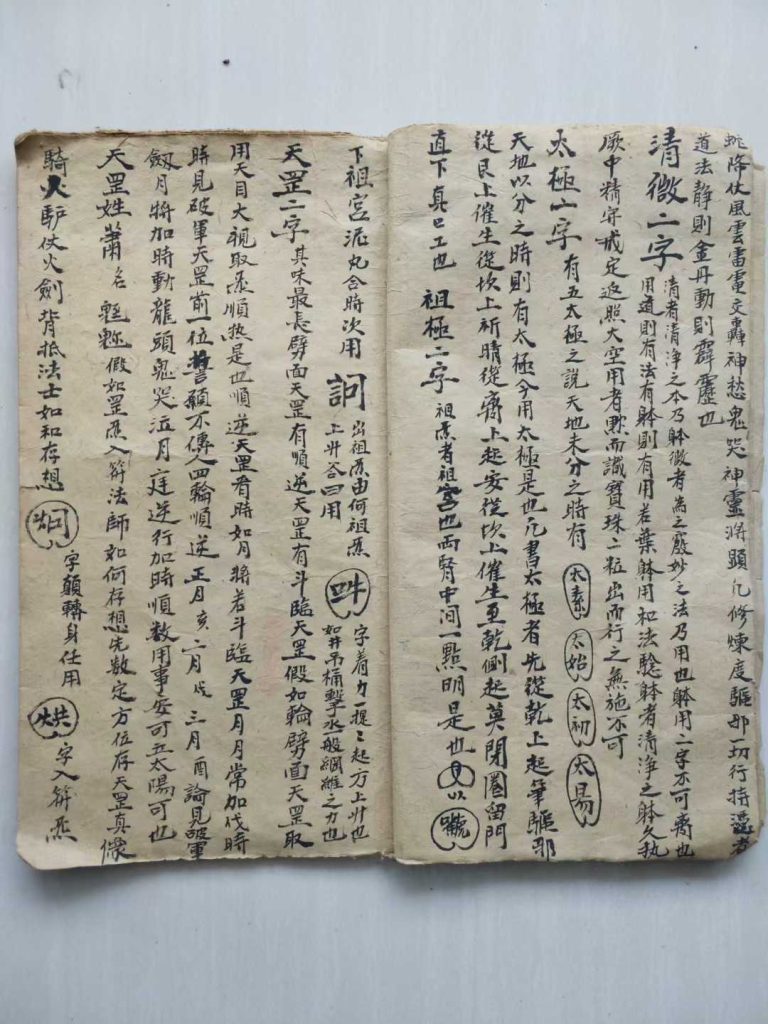 蛇降仗風雲雷電交轟神愁鬼哭神靈將顕凡修煉度驅邪一切行持󠄀者
道法静則金丹動則霹靂也
清微二字
清者清浄之本乃躰微者為之廢妙之法乃用也躰用二字不可离也
用道則有法有躰則有用若葉躰用和法騐躰者清浄之躰久执
厥中精守戒定返照大空用者默而識寶珠二粒出而行之無施不可
太極二字 有五太極之說天地未分之時有 太素 太始 太初 太易
天地以分之時則有太極今用太極是也凡書太極者先從乾上起筆驅邪
從艮上催生從坎上祈晴從离上起安從坎上催生至乾側起莫閉圈留門
直下真巳工也 祖極二字 祖炁者祖宮也両腎中间一點明是也 以
下祖宮泥丸合時次用 訶 出祖炁由何祖炁
上廾谷四用
字着力一提二起方上廾也
如井吊桶擊水一般綱維之力也
天罡二字 其味最長劈面天罡有順逆天罡有斗臨天罡假如輪劈面天罡取
用天目大視取炁順热是也順逆天罡看時如月將若斗臨天罡月月常加戌時
時見破軍天罡前一位誓願不傳人四輪順逆正月亥二月戌三月酉論見破軍
劔月將加時動龍頭鬼哭泣月建逆行加時順数用事安可五太陽可也
天罡姓蕭名 假如罡炁入符法師如何存想先数定方位存天罡真像
騎火馿仗火劍背抵法士如和存想 炯 字顛轉身任用 烘 字入符炁